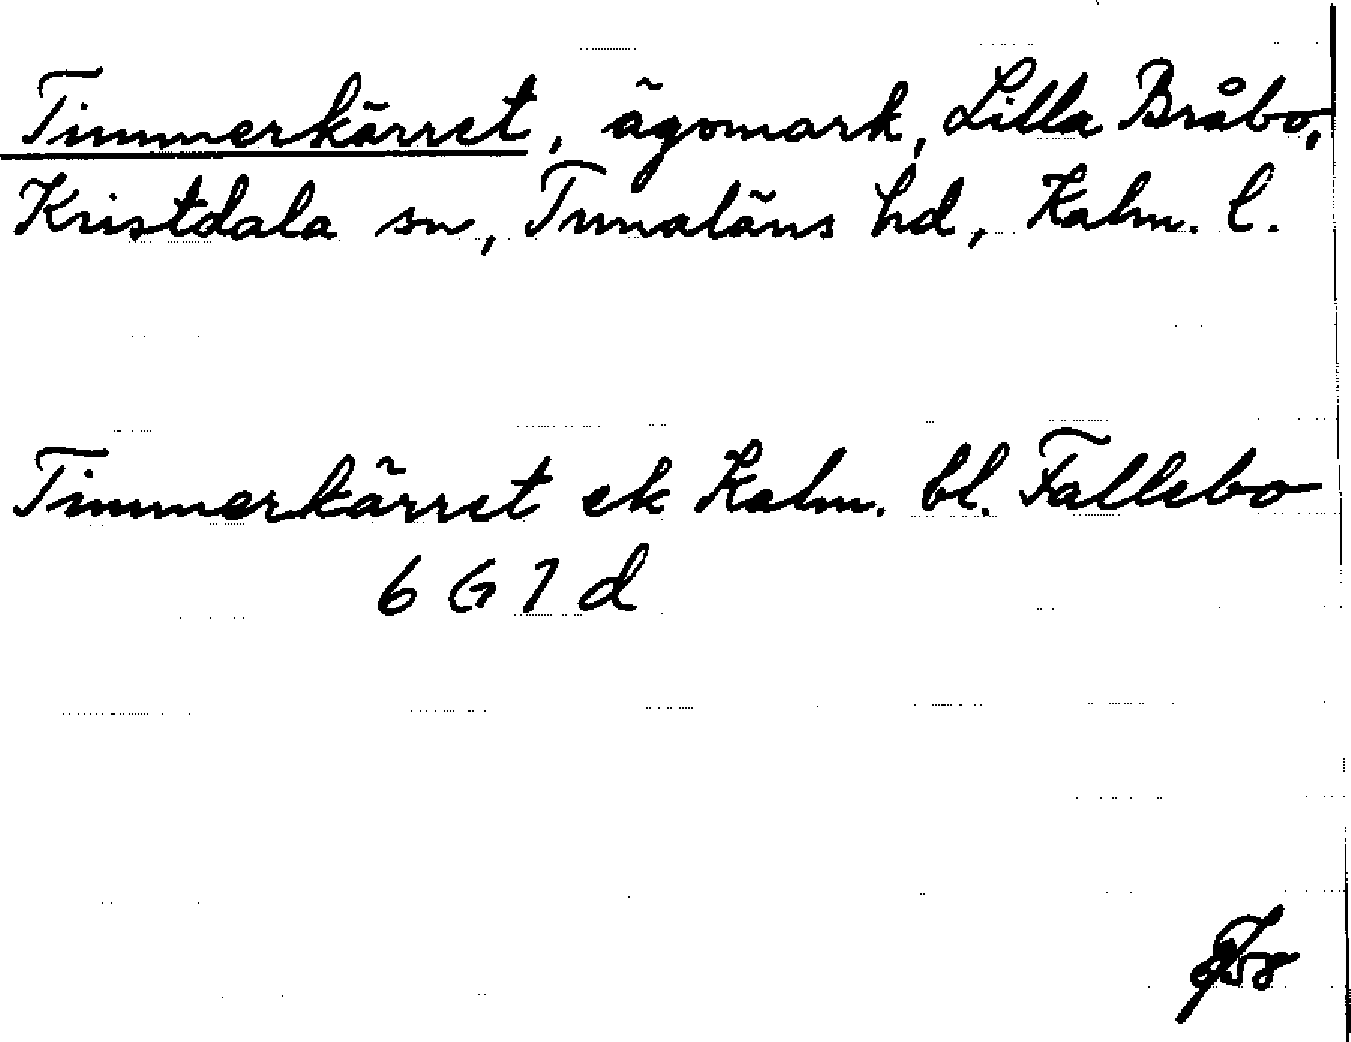 Timmerkärret, ägomark, Lilla Bråbo,
Kristdala sn, Tunaläns hd, Kalm. l.
Timmerkärret ek Kalm. bl. Fallebo
6 G 7 d